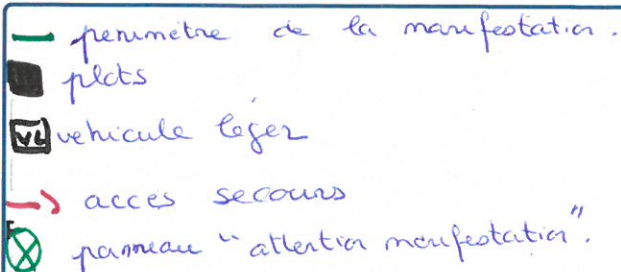 perimètre de la manifestation.
plots
VL vehicule léger
acces secours
panneau "attention manifestation".